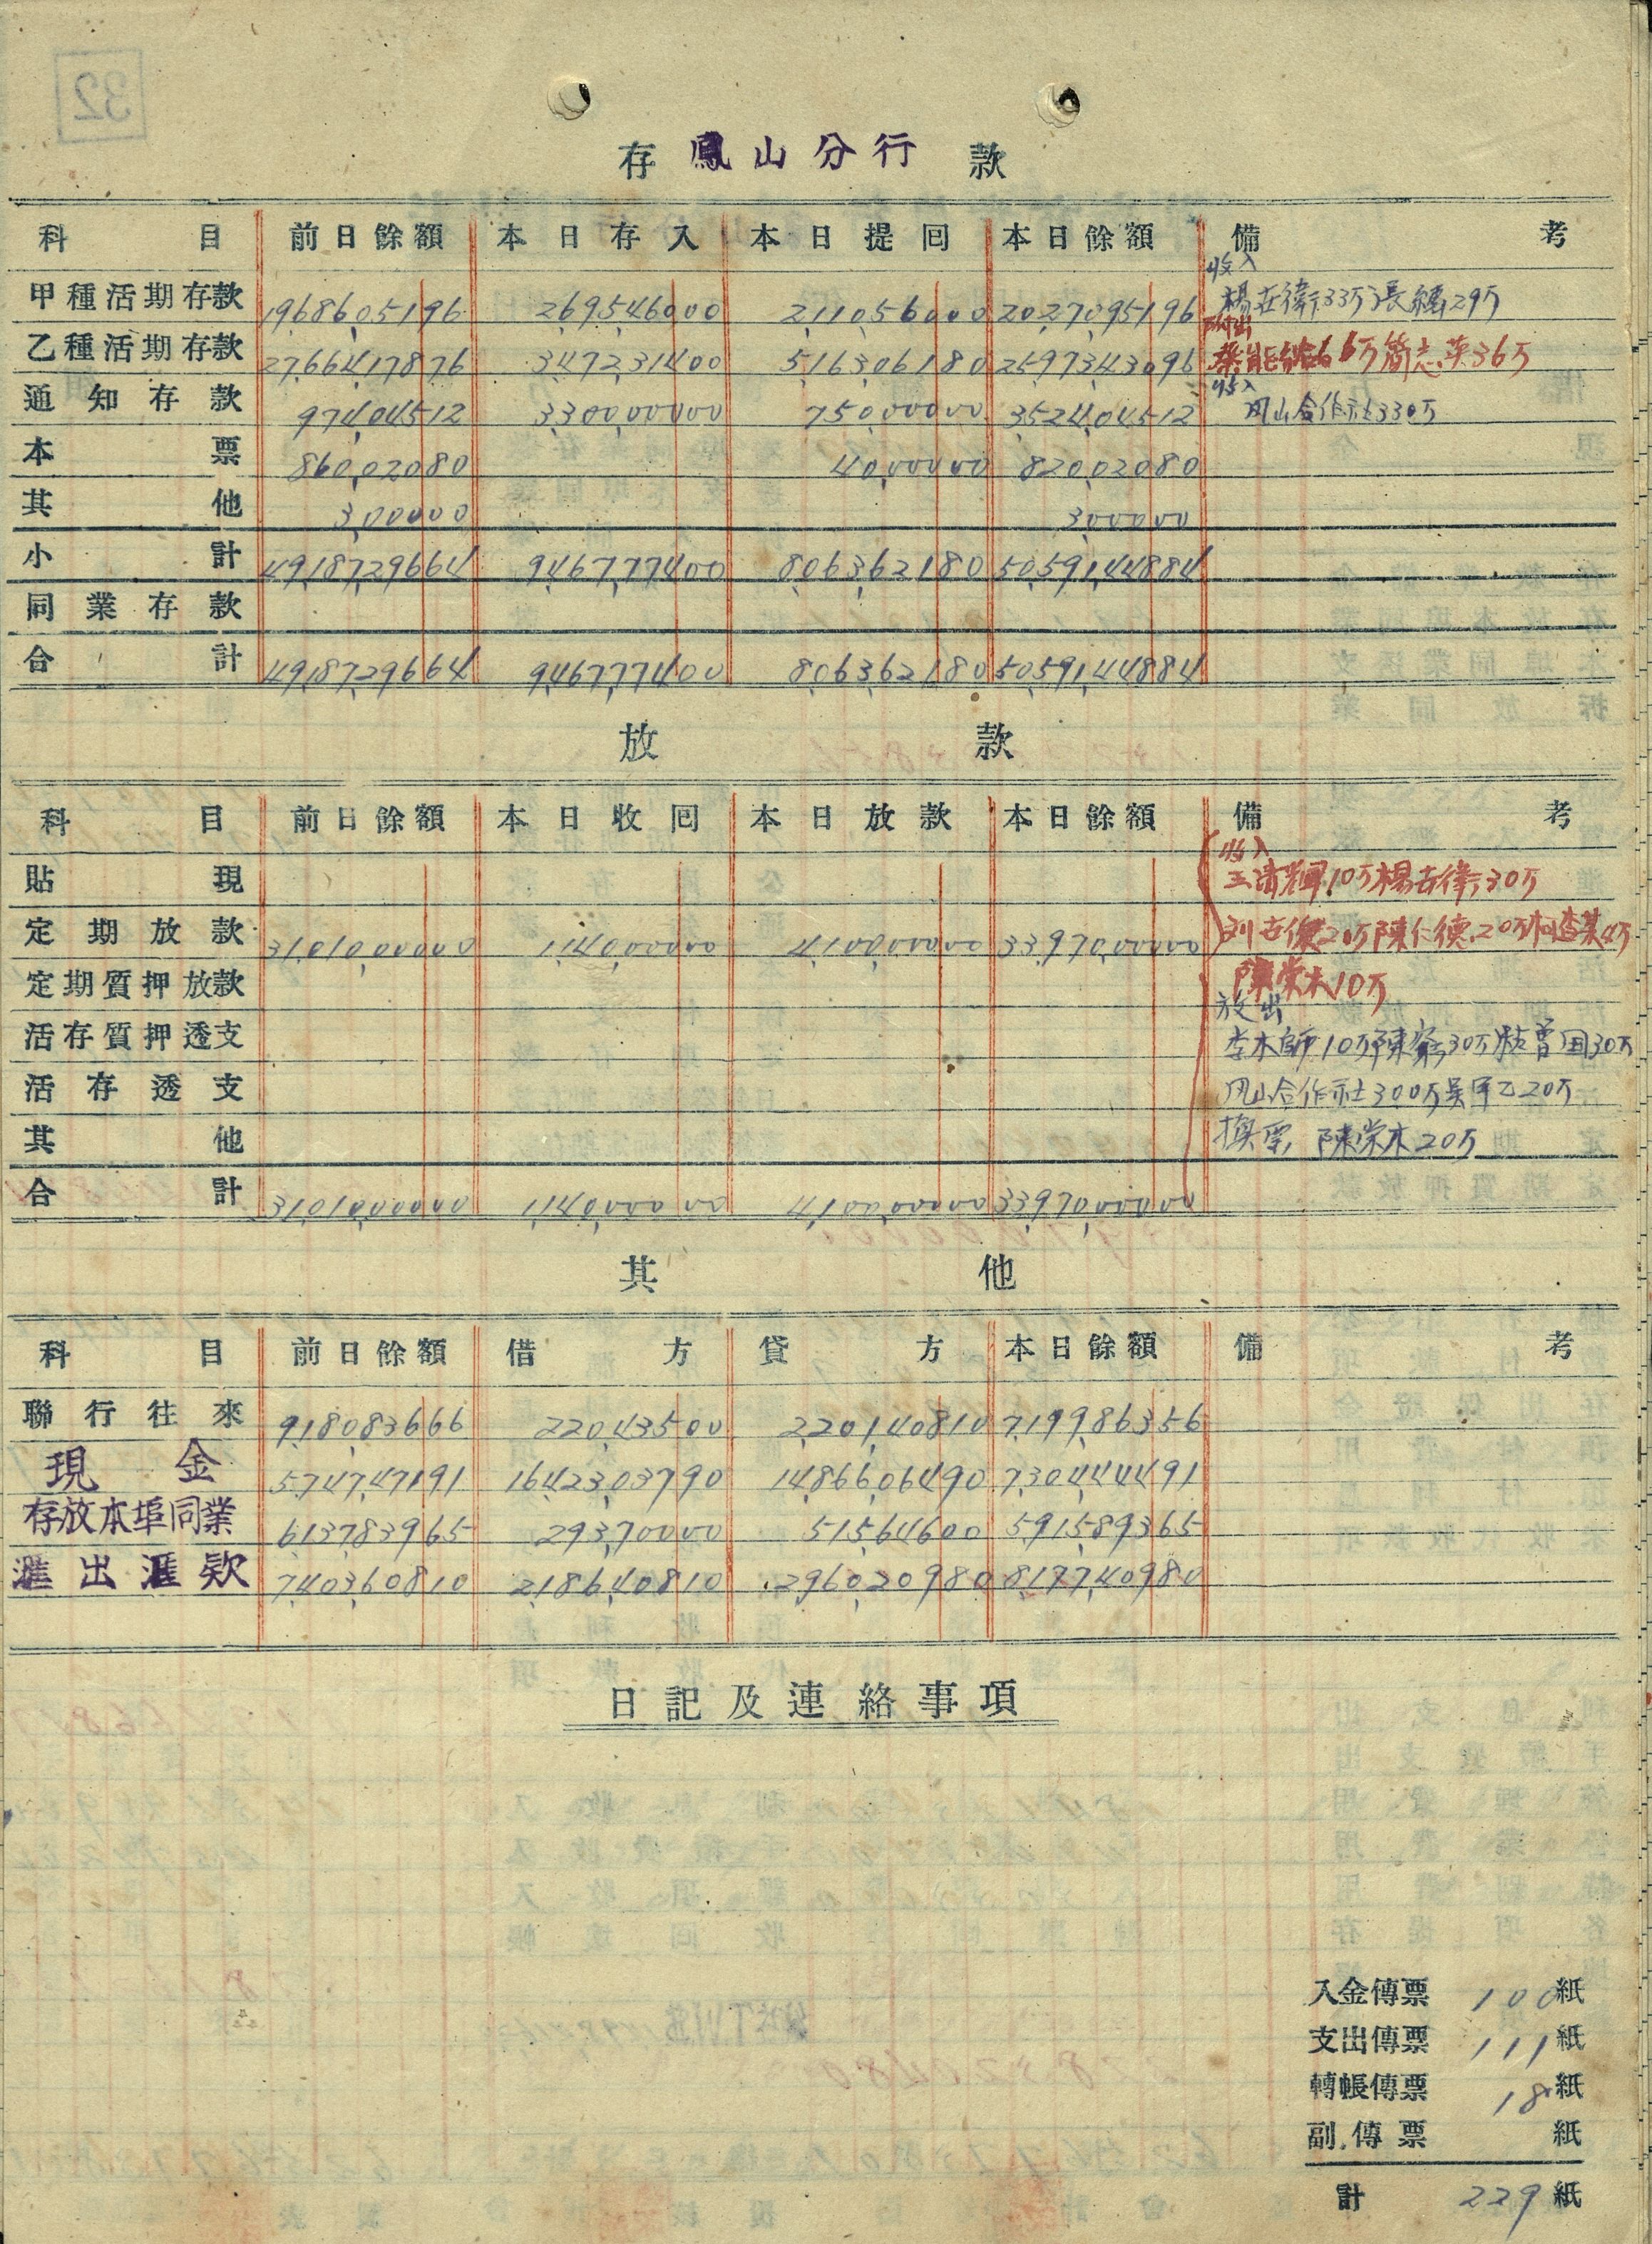 32
存 鳳山分行 款
科目 前日餘額 本日存入 本日提回 本日餘額 備考
收入
甲種活期存款 19,686,051 96 2,695,460 00 2,110,560 00 20,270,951 96 楊在衛33万 29万
乙種活期存款 27,664,178 76 3,472,314 00 5,163,061 80 25,973,430 96 66万簡志 36万
收入
通知存款 974,045 12 3,300,000 00 750,000 00 3,524,045 12 凤山合作社330万
本票 860,020 80 40,000 00 820,020 80
其他 3,000 00 3,000 00
小計 49,187,296 64 9,467,774 00 8,063,621 80 50,591,448 84
同業存款
合計 49,187,296 64 9,467,774 00 8,063,621 80 50,591,448 84
放款
科目 前日餘額 本日收回 本日放款 本日餘額 備考
收入
貼現 王清輝10万楊在衛30万
定期放款 31,010,000 00 1,140,000 00 4,100,000 00 33,970,000 00 20万陳仁德20万 4万
定期質押放款 陳崇木10万
放出
活存質押透支 李木師10万陳 30万 30万
活存透支 凤山合作社300万吳 20万
其他 換票 陳崇木20万
合計 31,010,000 00 1,140,000 00 4,100,000 00 33,970,000 00
其他
科目 前日餘額 借方 貸方 本日餘額 備考
聯行往來 9,180,836 66 220,435 00 2,201,408 10 7,199,863 56
現金 5,747,471 91 16,423,037 90 14,866,064 90 7,304,444 91
存放本埠同業 6,137,839 65 293,700 00 515,646 00 5,915,893 65
滙出滙款 7,403,608 10 2,186,408 10 2,960,209 80 8,177,409 80
日記及連絡事項
入金傳票 100紙
支出傳票 111紙
轉帳傳票 18紙
副傳票 紙
計 229紙